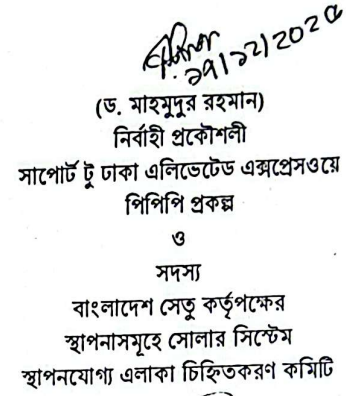 ২৯/১২/২০২৫
(ড. মাহমুদুর রহমান)
নির্বাহী প্রকৌশলী
সাপোর্ট টু ঢাকা এলিভেটেড এক্সপ্রেসওয়ে
পিপিপি প্রকল্প
ও
সদস্য
বাংলাদেশ সেতু কর্তৃপক্ষের
স্থাপনাসমূহে সোলার সিস্টেম
স্থাপনযোগ্য এলাকা চিহ্নিতকরণ কমিটি